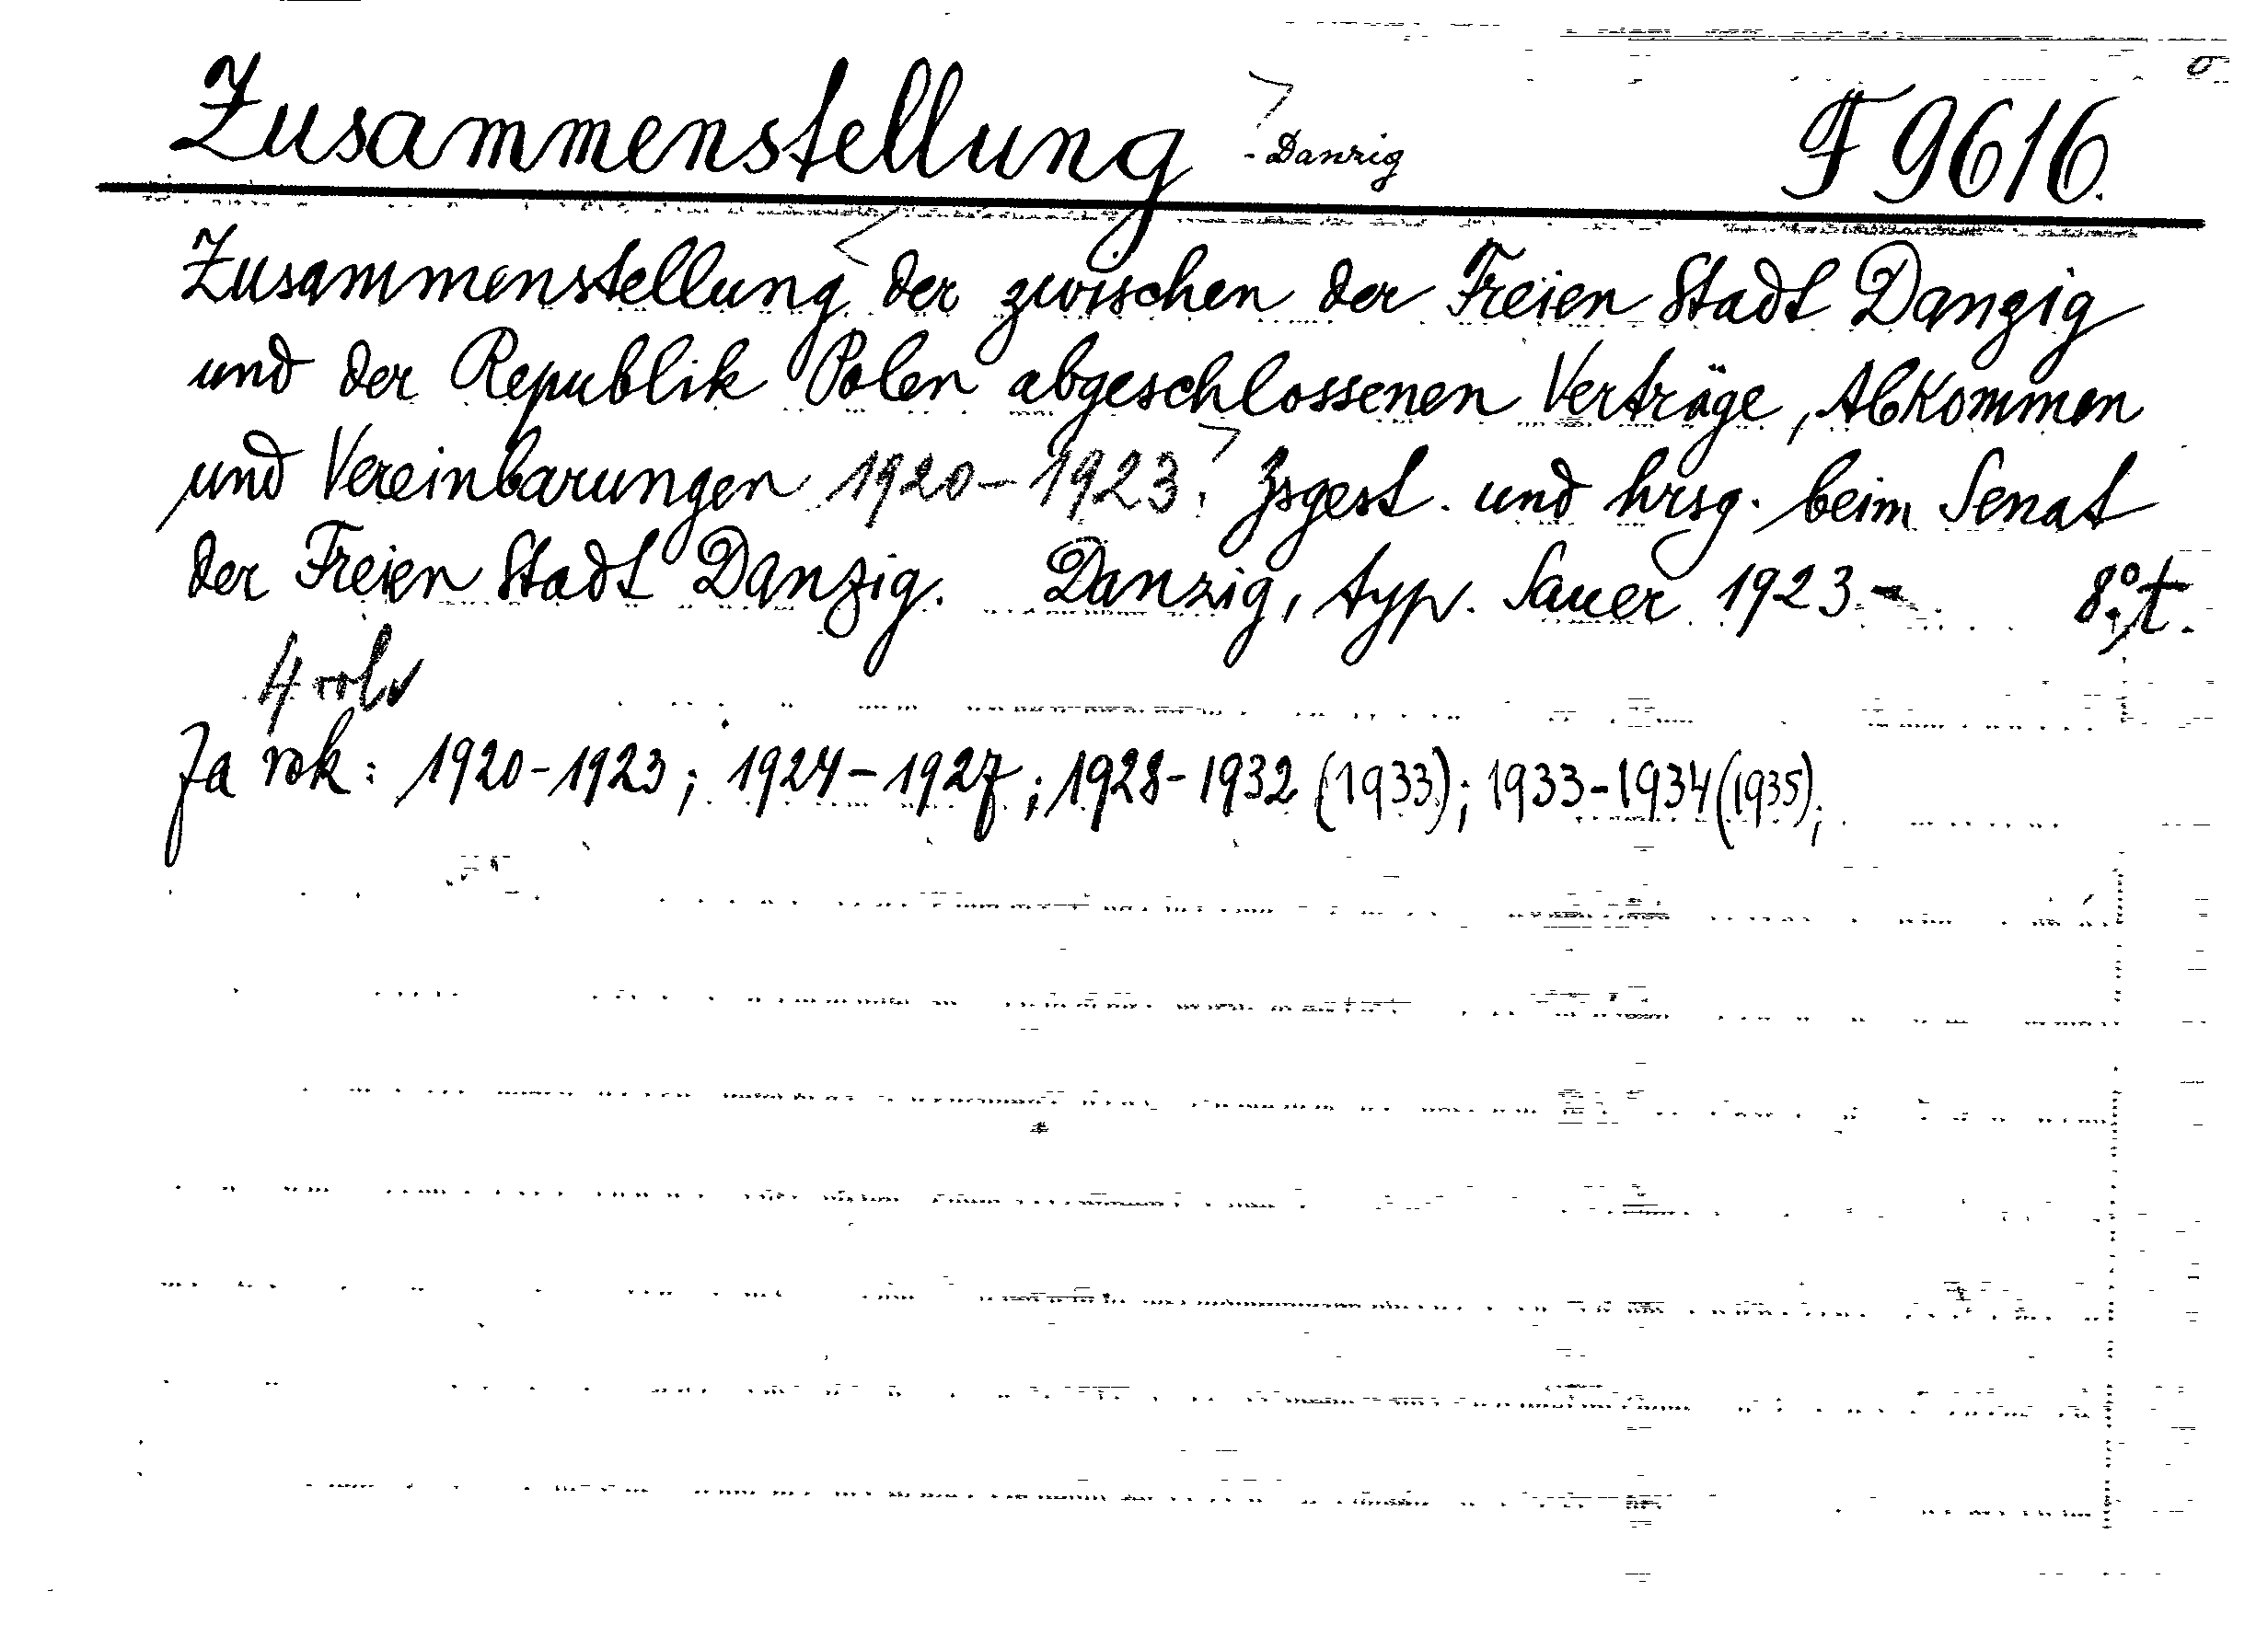 Zusammenstellung - Danzig F 9616.
Zusammenstellung der zwischen der Freien Stadt Danzig
und der Republik Polen abgeschlossenen Verträge, Abkommen
und Vereinbarungen 1920-1923. Zsgest. und hrsg. beim Senat
der Freien Stadt Danzig. Danzig, typ. Sauer 1923.- 8° t.
4 vol
Za rok: 1920-1923; 1924-1927; 1928-1932 (1933); 1933-1934 (1935);